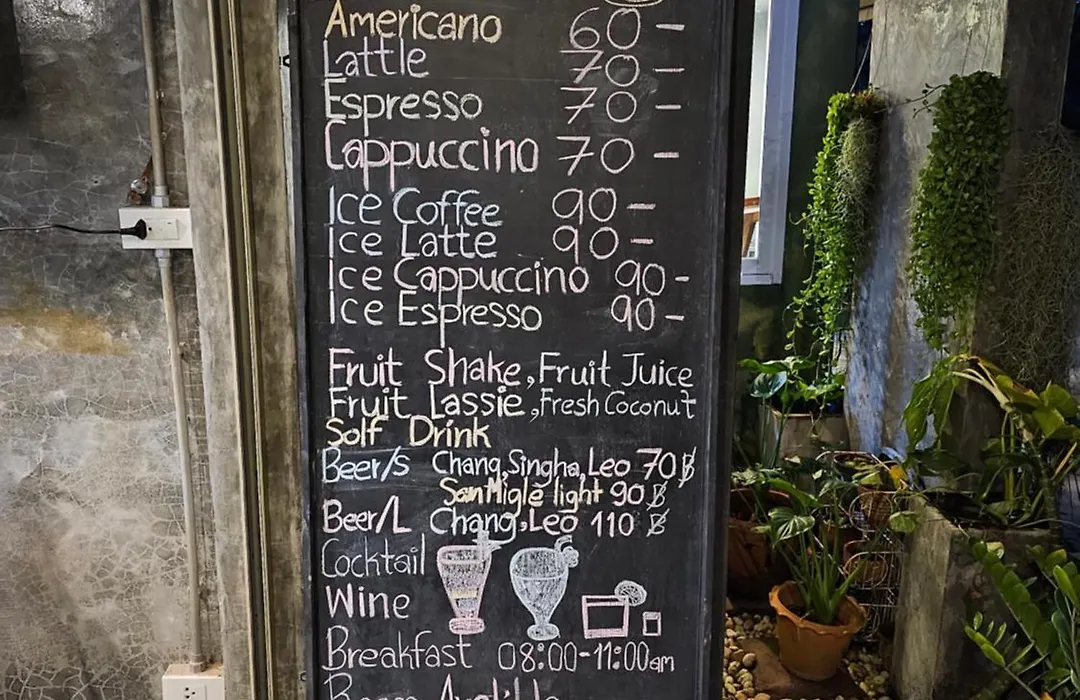 Americano 60 -
Lattle 70 -
Espresso 70 -
Cappuccino 70 -
Ice Coffee 90 -
Ice Latte 90 -
Ice Cappuccino 90 -
Ice Espresso 90 -
Fruit Shake, Fruit Juice
Fruit Lassie, Fresh Coconut
Solf Drink
Beer/s Chang, Singha, Leo 70 ฿
San Migle light 90 ฿
Beer/L Chang, Leo 110 ฿
Cocktail
Wine
Breakfast 08:00-11:00am